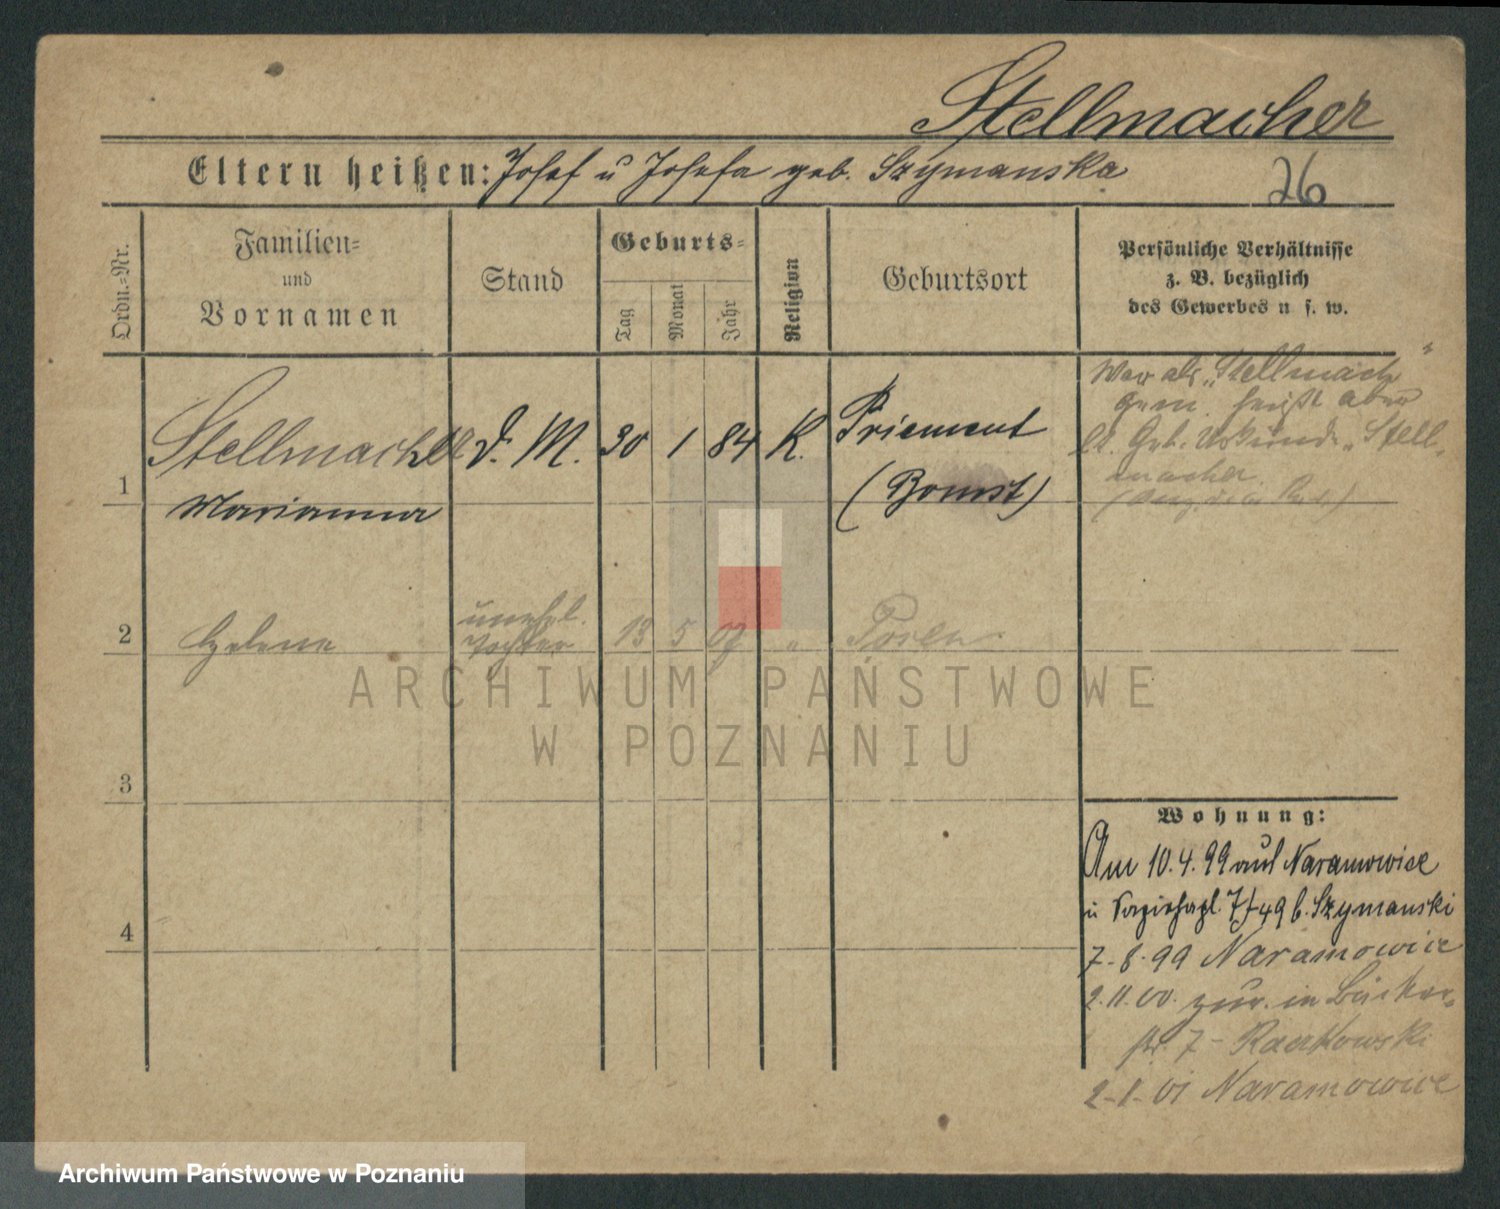 Stellmacher
Eltern heißen: Josef u Josefa geb. Szymanska
26
Ordn.-Nr.
Familien-
und
Vornamen
Stand
Geburts-
Tag
Monat
Jahr
Religion
Geburtsort
Persönliche Verhältnisse
z. B. bezüglich
des Gewerbes u s. w.
1
Stellmacher
Marianna
d. M.
30
1
84
K.
Priement
(Bomst)
War als „Stellmach“
gem. heißt aber
lt. Geb. Urkunde „Stell-
macher
2
Helene
unehl.
Tochter
13
5
07
"
Posen
3
4
Wohnung:
Am 10.4.99 auf Naramowice
u 7/49 b. Szymanski
7-8-99 Naramowice
2.11.00. zur. in Bäcker-
str. 7 - Raczkowski
2-1-01 Naramowice
ARCHIWUM PAŃSTWOWE
W POZNANIU
Archiwum Państwowe w Poznaniu